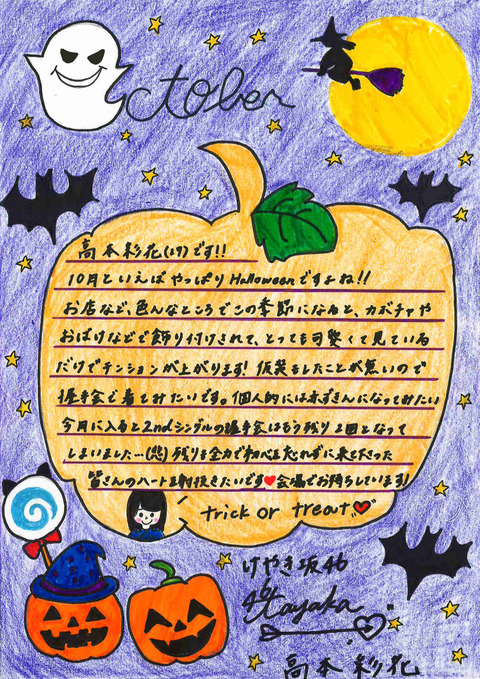 October
高本彩花(19)です!!
10月といえばやっぱりHalloweenですよね!!
お店など、色んなところでこの季節になると、カボチャや
おばけなどで飾り付けされて、とっても可愛くて見ている
だけでテンションが上がります! 仮装をしたことが無いので
握手会で着てみたいです。個人的には赤ずきんになってみたい
今月に入ると2ndシングルの握手会はもう残り2回となって
しまいました…(悲) 残りも全力で初心を忘れずに来て下さった
皆さんのハートを射抜きたいです♥会場でお待ちしています!
trick or treat♥
けやき坂46
Ayaka
高本彩花